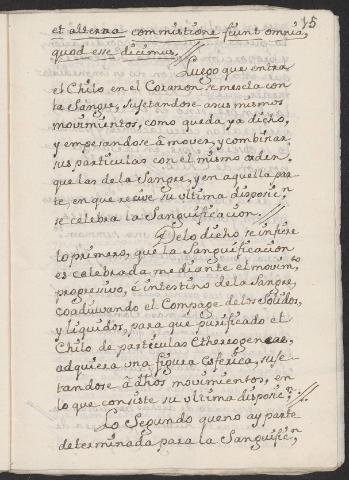 15
et alterna commistione fiunt omnia,
quod esse dicimus.
Luego que entra
el Chilo en el Corazon se mescla con
la Sangre, sujetandose asus mismos
movimientos, como queda ya dicho,
y empesandose â mover, y combinar
sus particulas con el mismo orden
que las de la Sangre, y en aquella par-
te, en que recive su ultima disposicn
se celebra la Sanguificacion.
Delo dicho se infiere
lo primero, que la Sanguificacion
es celebrada mediante el movimto
progresivo, è intestino dela Sangre,
coadiuvando el Compage delos Solidos,
y liquidos, para que purificado el
Chilo de particulas Ethereogeneas,
adquiera una figura Esferica, suje-
tandose â dhos movimientos, en
lo que consiste su ultima disposicn.
Lo Segundo queno ay parte
determinada para la Sanguificn